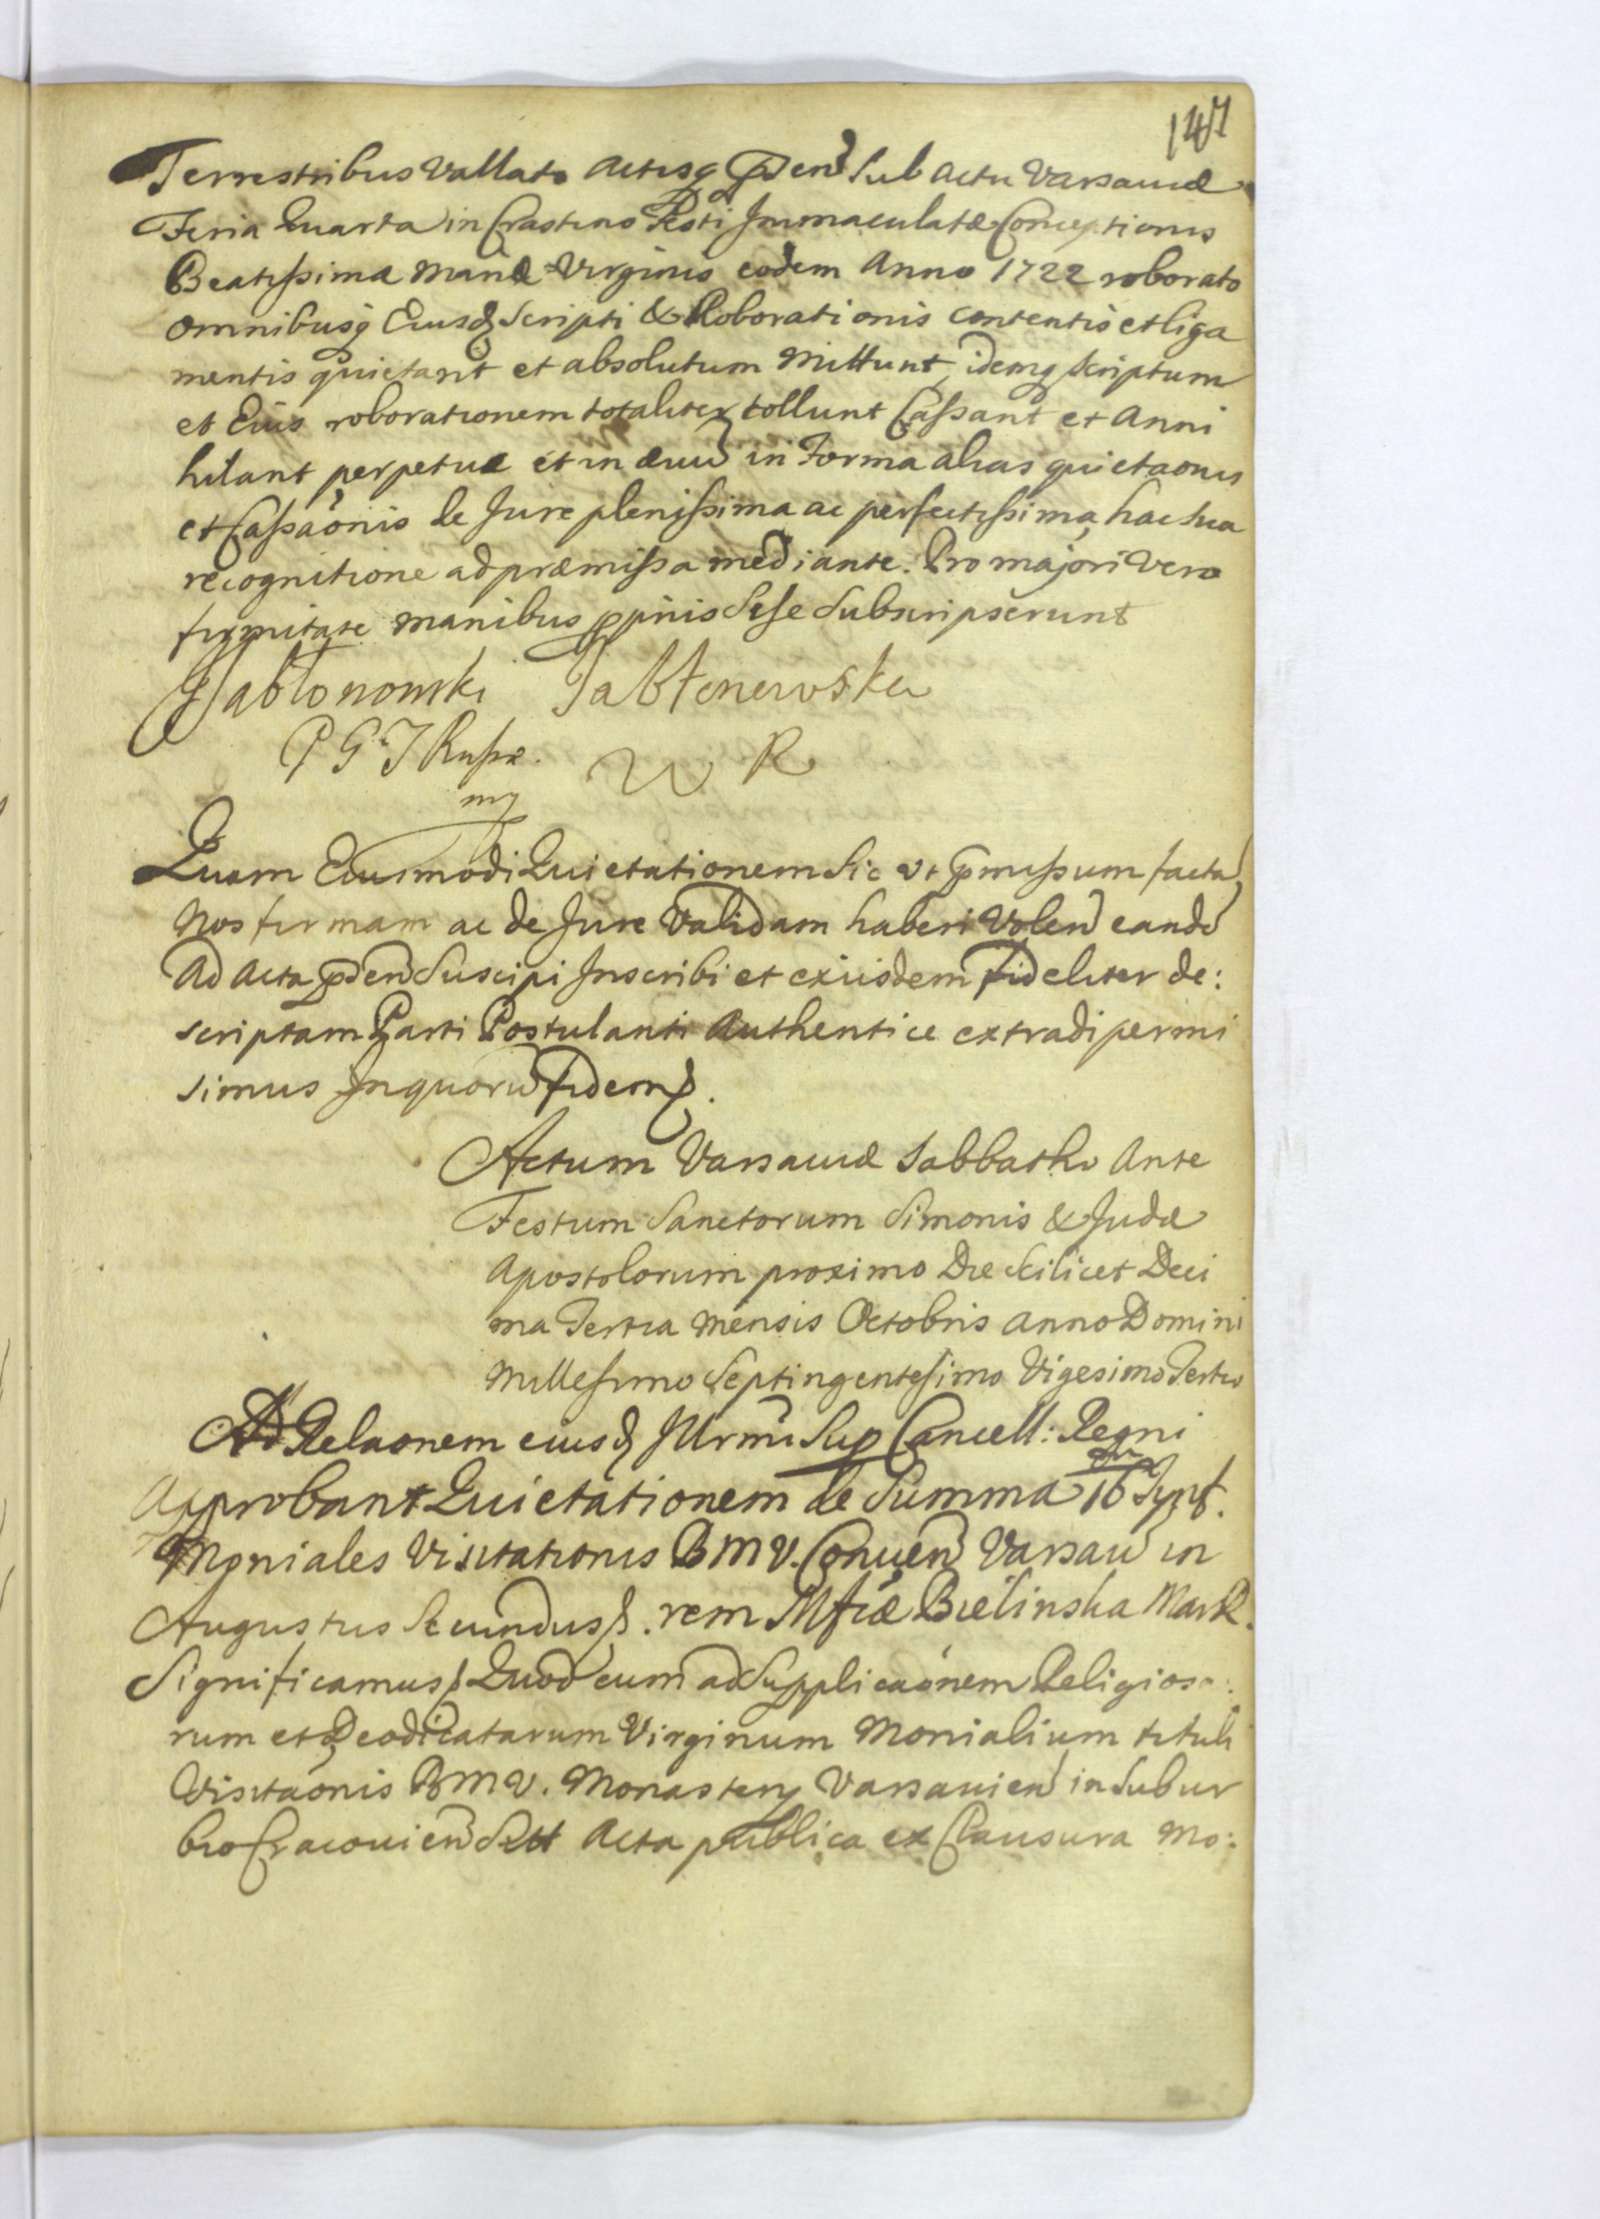 147
Terrestribus Vallato Actisq. pnden Sub Actu Varsaviæ
Feria Quarta in Crastino Festi Immaculatæ Conceptionis
Beatissimæ Mariæ Virginis eodem Anno 1722 roborato
omnibusq. Eiusd. Scripti & Roborationis contentis et liga
mentis quietant et absolutum Mittunt, idemq. Scriptum
et Eius roborationem totaliter tollunt Cassant et Anni
hilant perpetuæ et in ævu in Forma alias quietaonis
et Cassaonis de Jure plenissima ac perfectissima, hac sua
recognitione ad præmissa mediante. Pro majori vero
firmitate manibus ppriis sese Subscripserunt
Jabłonowski Jabłonowska
P G J Russæ. W R
mp
Quam Eiusmodi Quietationem Sic vt pmissum facta
Nos firmam ac de Jure Validam haberi Volen eande
Ad Acta pnden Suscipi Inscribi et exiusdem Fideliter de:
scriptam Parti Postulanti Authentice extradi permi
simus In quoru Fidem p.
Actum Varsaviæ Sabbatho Ante
Festum Sanctorum Simonis & Judæ
Apostolorum proximo Die Scilicet Deci
ma Tertia Mensis Octobris Anno Domini
Millesimo Septingentesimo Vigesimo Tertio
Ad Relaonem eiusd. Illrmi Sup Cancell: Regni
Approbant Quietationem de Summa 16 Tynf.
Moniales Visitationis B M V. Conven Varsav in
Augustus Secundus p. rem Mficæ Bielinska Mar R.
Significamus p Quod cum ad Supplicaonem Religioso:
rum et Deodicatarum Virginum Monialium tituli
Visitaonis B M V. Monastery Varsavien in Subur
bio Cracovien Sttt Acta publica ex Clausura Mo: